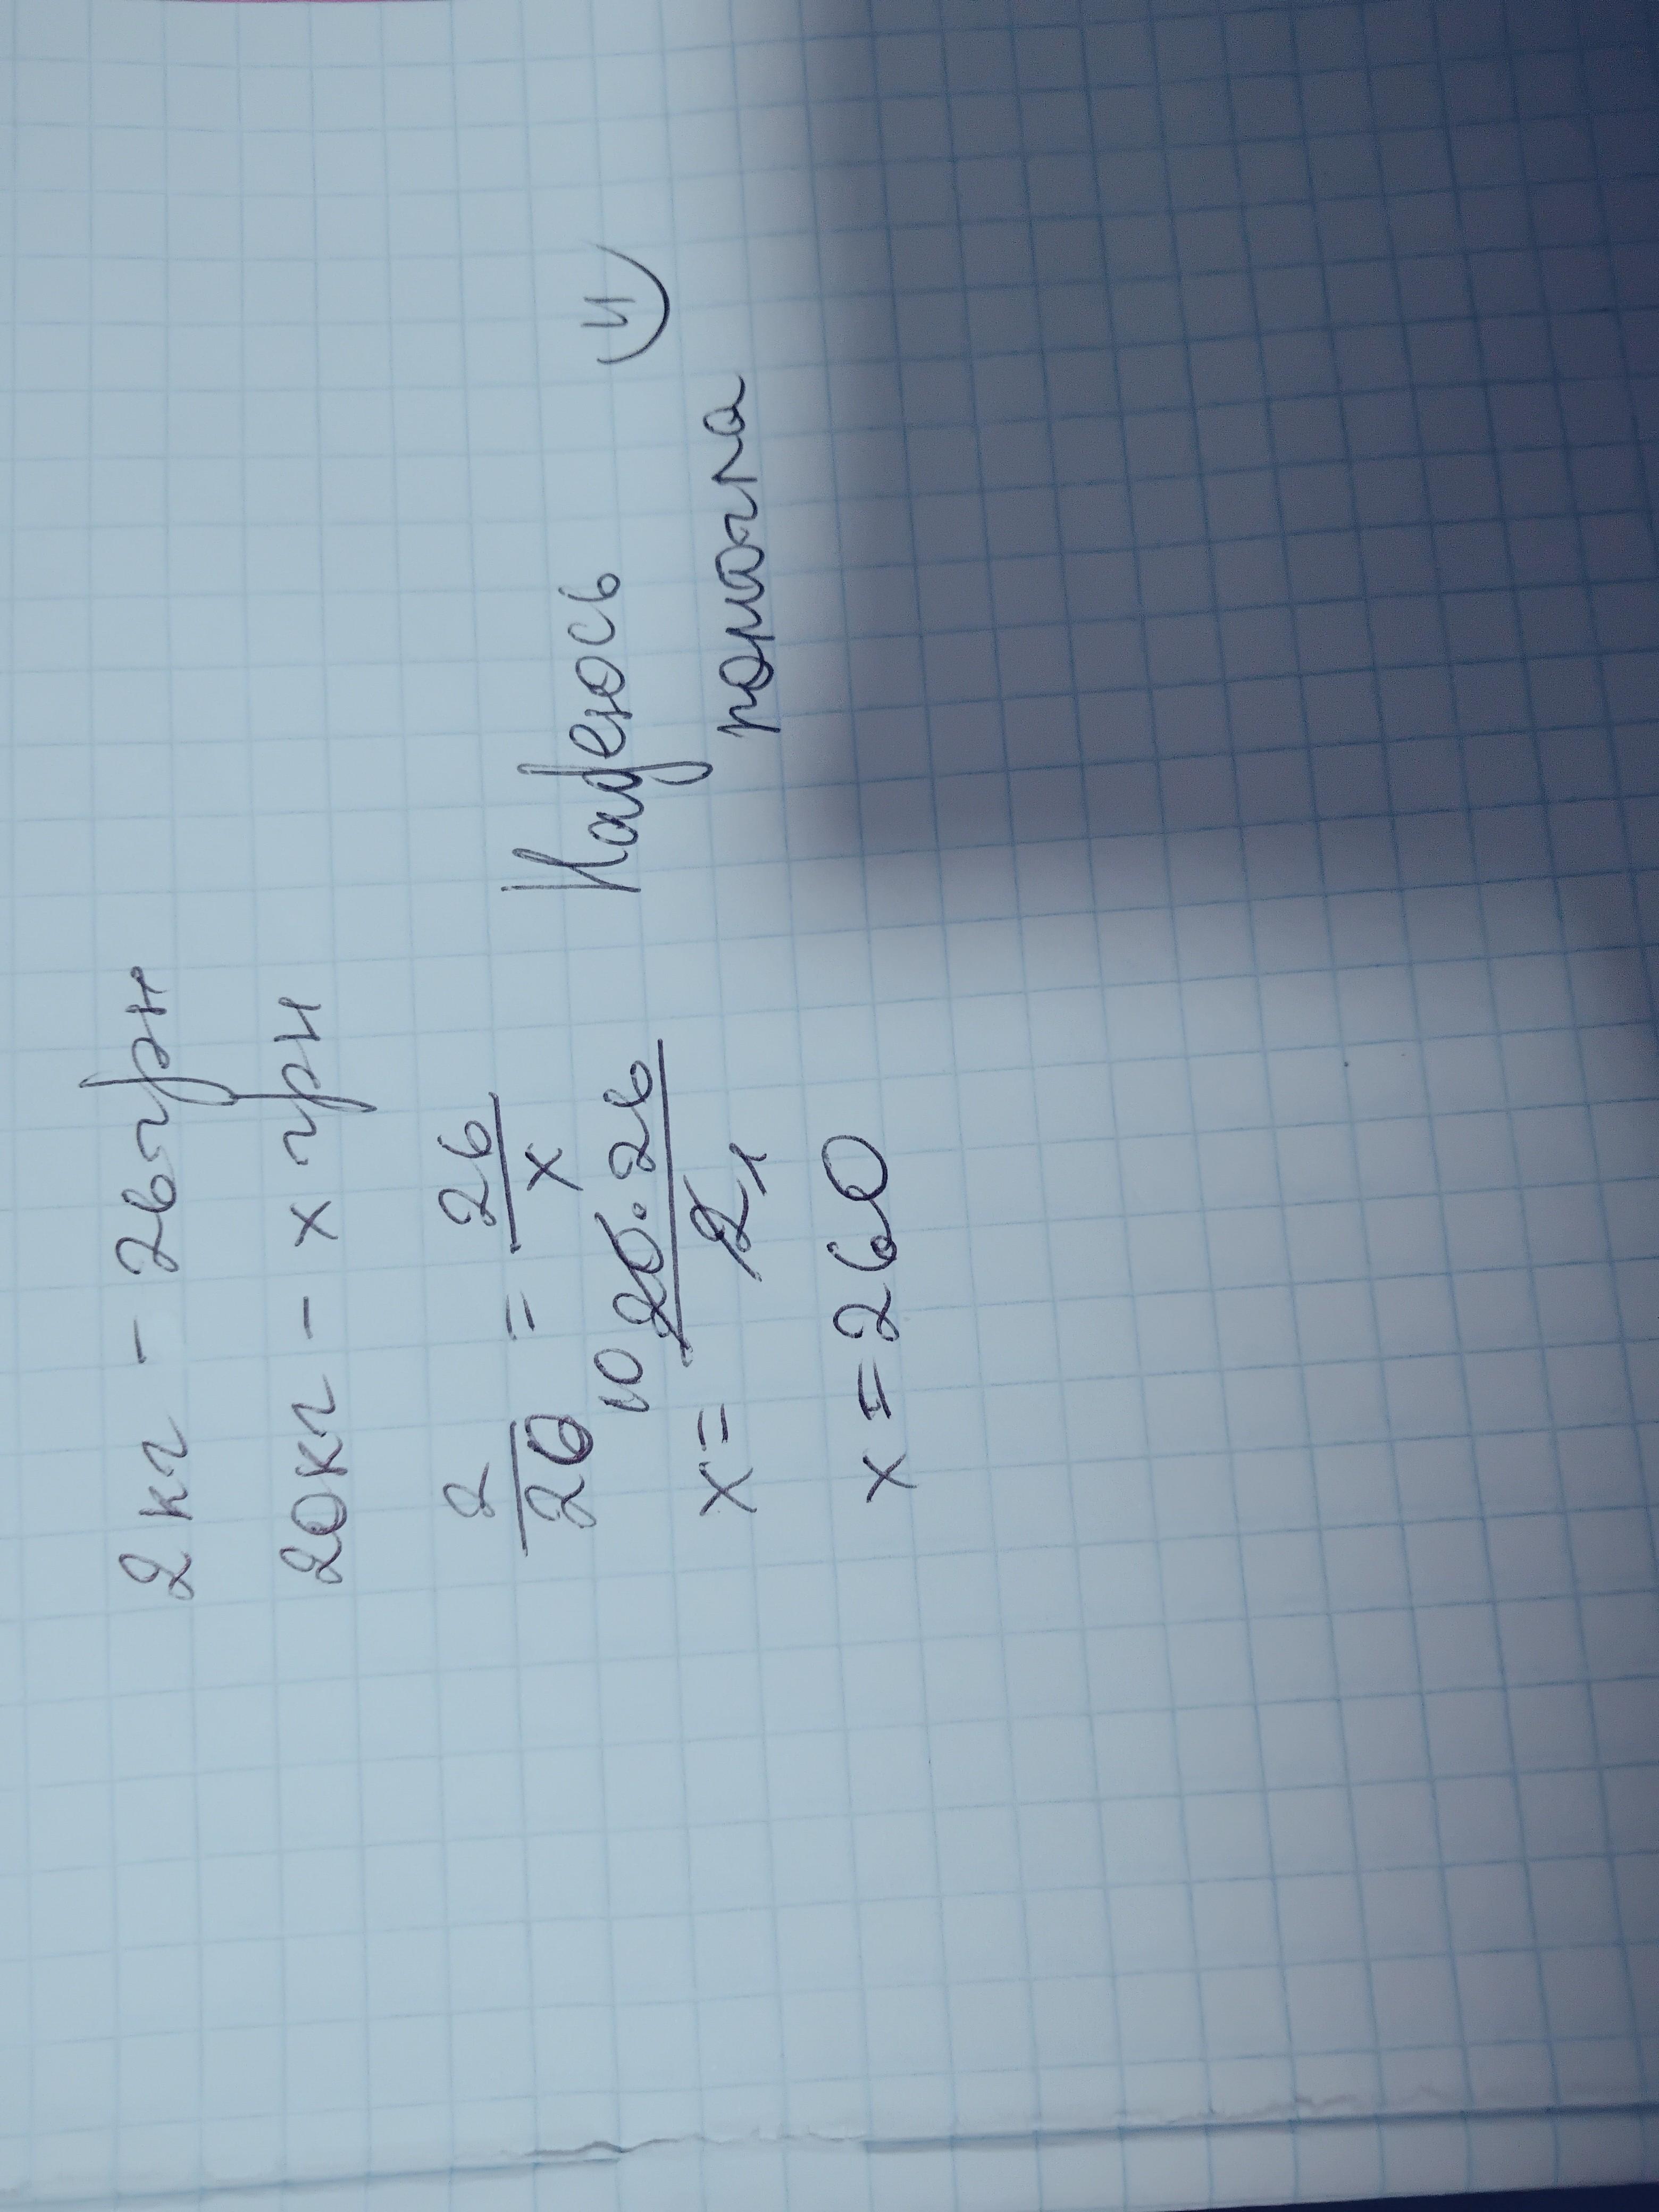 2 кг - 26 грн
20 кг - х грн
2/20 = 26/х
х = 10 20 · 26 / 2 1
х = 260
Надеюсь
помогла